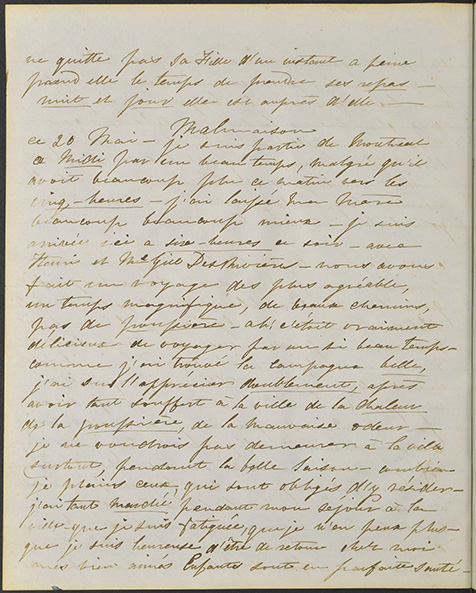 ne quitte pas sa Fille d'un instant a peine
prend elle le temps de prendre ses repas -
nuit et jour elle est auprès d'elle -
Malmaison
ce 20 Mai - je suis partie de Montreal
a Midi par un beau temps, malgré qu'il
avoit beaucoup plu ce matin vers les
cinq-heures - j'ai laissé ma Mere
beaucoup beaucoup mieux - je suis
arrivée ici a six-heures ce soir - avec
Henri et McGill DesRivières - nous avons
fait un voyage des plus agréable,
un temps magnifique, de beaux chemins,
pas de poussière - ah! c'était vraiment
délicieux de voyager par un si beau temps -
comme j'ai trouvé la campagne belle,
j'ai su l'apprécier doublement, après
avoir tant souffert à la ville de la chaleur
de la poussière, de la mauvaise odeur -
je ne voudrois pas demeurer à la ville
surtout, pendant la belle saison - combien
je plains ceux, qui sont obligés d'y résider -
j'ai tant marché, pendant mon séjour à la
ville - que je suis fatiguée, que je n'en peux plus -
que je suis heureuse d'être de retour chez moi
mes bien aimés Enfants sont en parfaite santé -